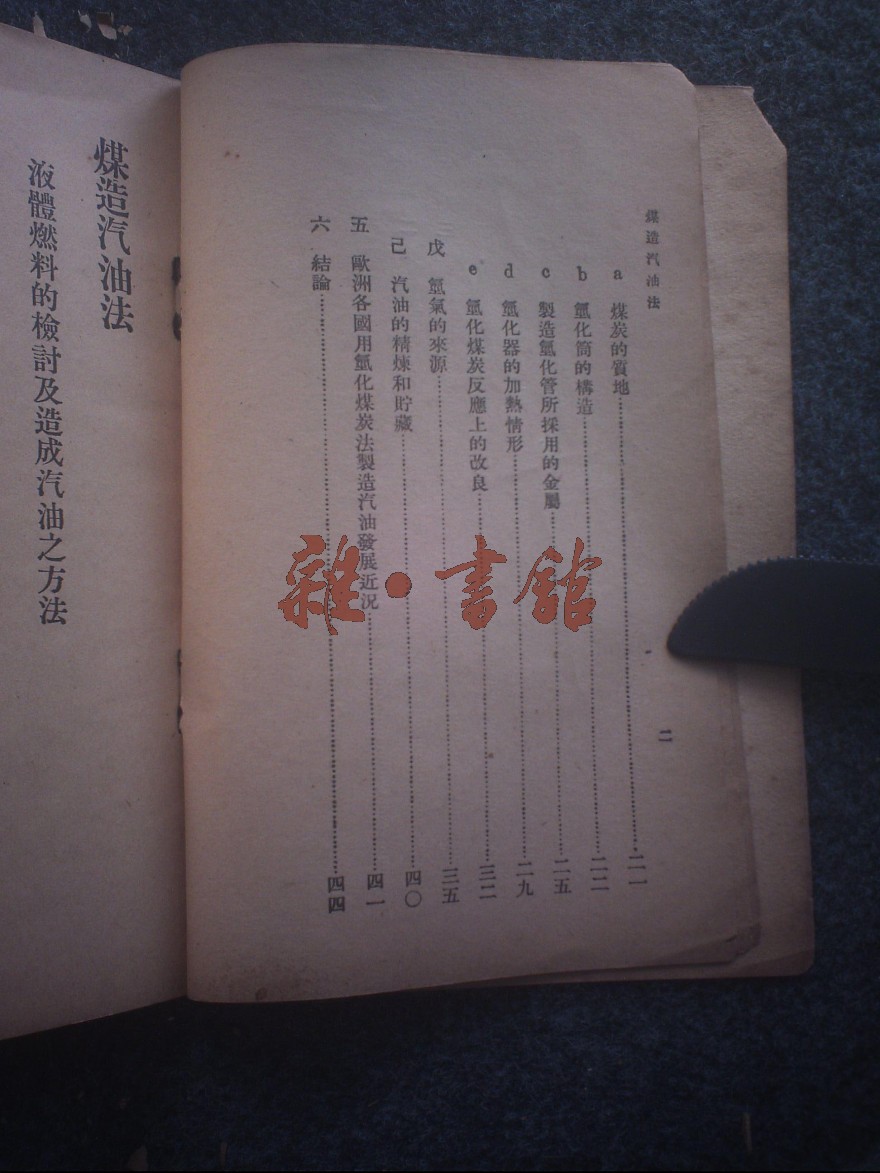 煤造汽油法
二
a 煤炭的質地……二一
b 氫化筒的構造……二二
c 製造氫化管所採用的金屬……二五
d 氫化器的加熱情形……二九
e 氫化煤炭反應上的改良……三二
戊 氫氣的來源……三五
己 汽油的精煉和貯藏……四〇
五 歐洲各國用氫化煤炭法製造汽油發展近況……四一
六 結論……四四
煤造汽油法
液體燃料的檢討及造成汽油之方法
雜·書館